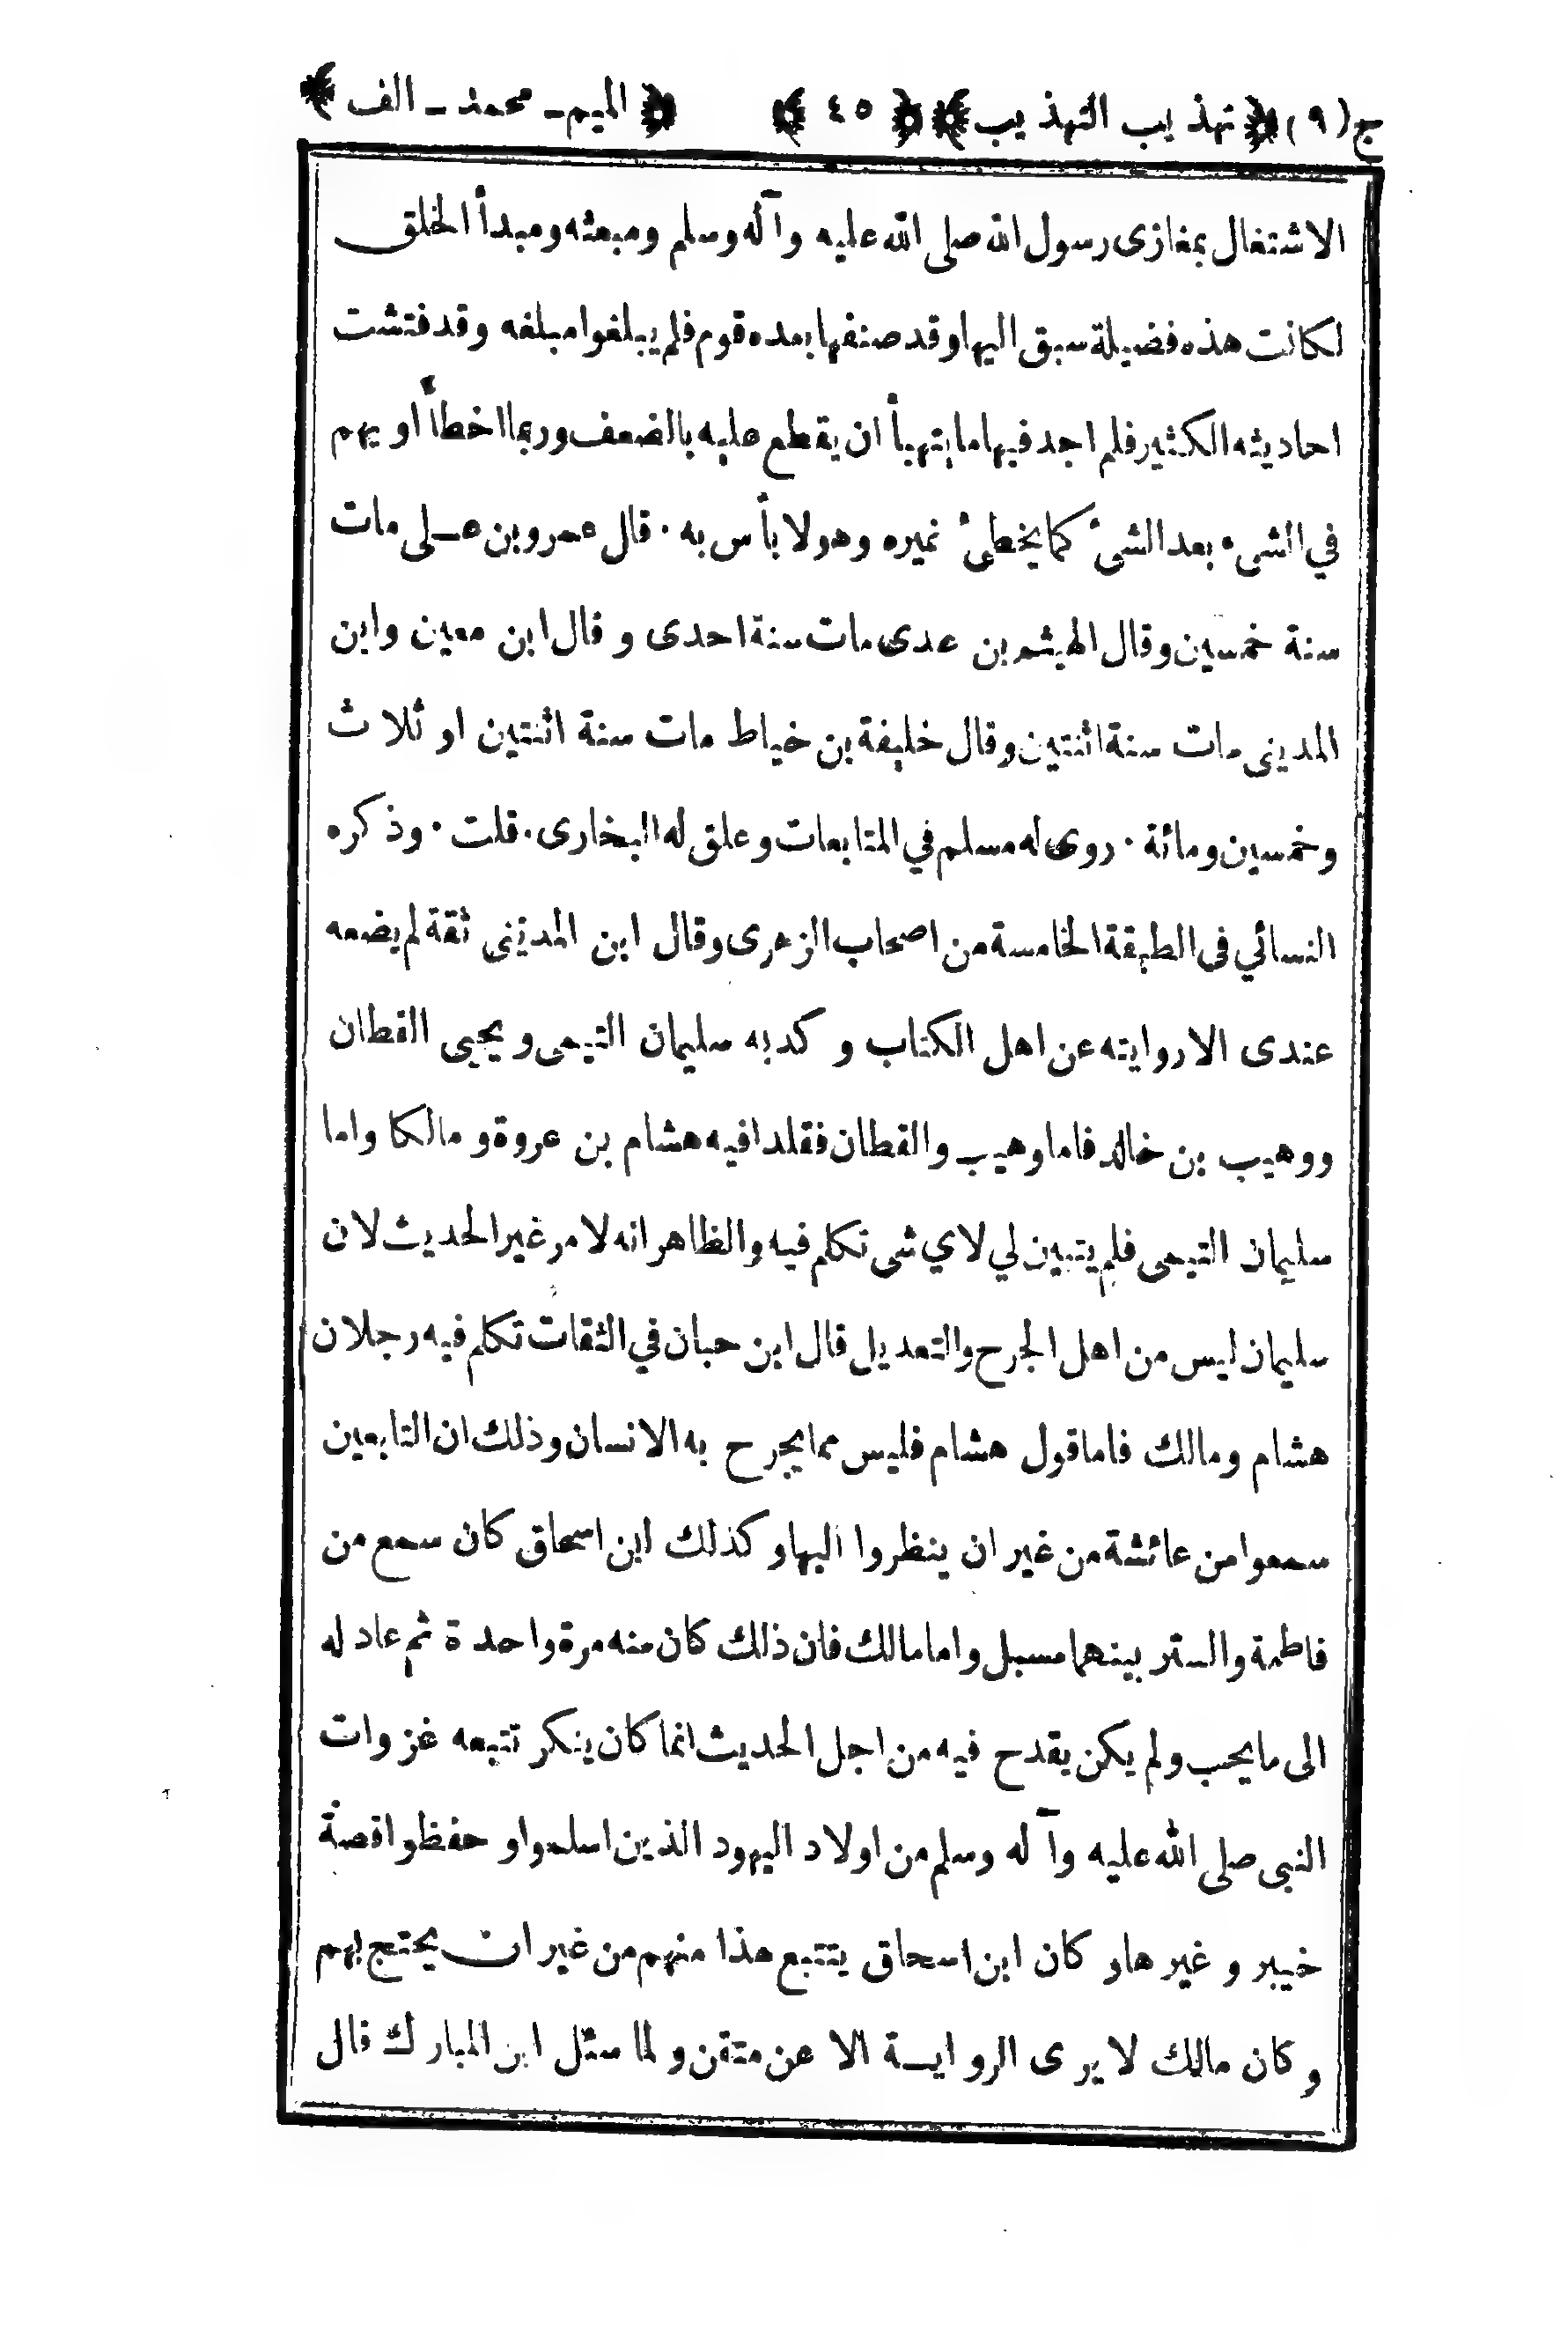 ج (٩) ﴿ تهذيب التهذيب ﴾ ﴿ ٤٥ ﴾ ﴿ الميم - محمد - الف ﴾
الاشتغال بمغازى رسول الله صلى الله عليه وآله وسلم ومبعثه ومبدأ الخلق
لكانت هذه فضيلة سبق اليها وقد صنفها بعده قوم فلم يبلغوا مبلغه وقد فتشت
احاديثه الكثير فلم اجد فيها ما يتهيأ ان يقطع عليه بالضعف وربما اخطأ او يهم
في الشيء بعد الشئ كما يخطئ غيره وهو لا بأس به · قال عمرو بن على مات
سنة خمسين وقال الهيثم بن عدى مات سنة احدى وقال ابن معين وابن
المدينى مات سنة اثنتين وقال خليفة بن خياط مات سنة اثنتين او ثلاث
وخمسين ومائة · روى له مسلم في المتابعات وعلق له البخارى · قلت · وذكره
النسائي فى الطبقة الخامسة من اصحاب الزهرى وقال ابن المدينى ثقة لم يضعه
عندى الا روايته عن اهل الكتاب وكذبه سليمان التيمى ويحيى القطان
ووهيب بن خالد فاما وهيب والقطان فقلدا فيه هشام بن عروة ومالكا واما
سليمان التيمى فلم يتبين لي لاي شى تكلم فيه والظاهر انه لامر غير الحديث لان
سليمان ليس من اهل الجرح والتعديل قال ابن حبان في الثقات تكلم فيه رجلان
هشام ومالك فاما قول هشام فليس مما يجرح به الانسان وذلك ان التابعين
سمعوا من عائشة من غير ان ينظروا اليها وكذلك ابن اسحاق كان سمع من
فاطمة والستر بينهما مسبل واما مالك فان ذلك كان منه مرة واحدة ثم عاد له
الى ما يحب ولم يكن يقدح فيه من اجل الحديث انما كان ينكر تتبعه غزوات
النبى صلى الله عليه وآله وسلم من اولاد اليهود الذين اسلموا وحفظوا قصة
خيبر وغيرها وكان ابن اسحاق يتتبع هذا منهم من غير ان يحتج بهم
وكان مالك لا يرى الرواية الا عن متقن ولما سئل ابن المبارك قال